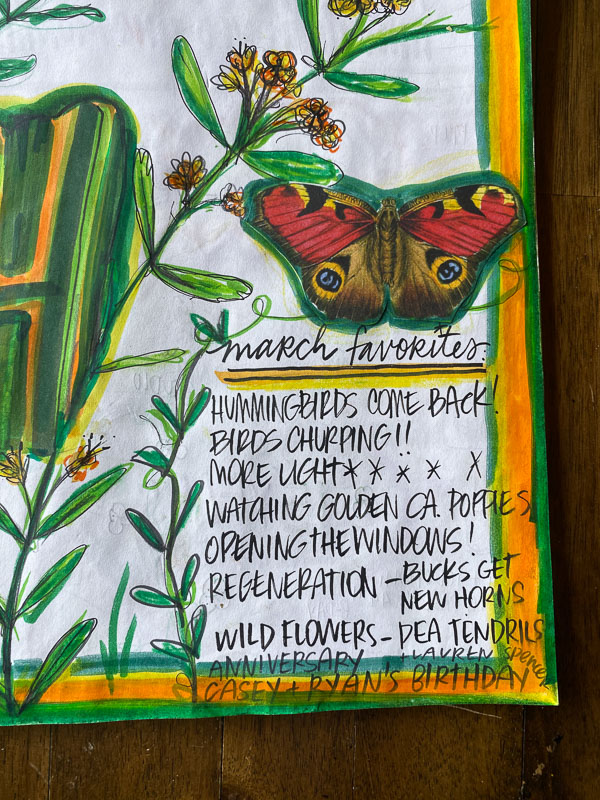 march favorites:
HUMMINGBIRDS COME BACK!
BIRDS CHURPING!!
MORE LIGHT * * * * *
WATCHING GOLDEN CA. POPPIES
OPENING THE WINDOWS!
REGENERATION - BUCKS GET
NEW HORNS
WILD FLOWERS - PEA TENDRILS
ANNIVERSARY + LAUREN Spencer
CASEY + RYAN'S BIRTHDAY